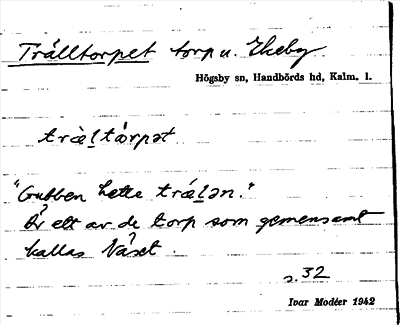 Trälltorpet torp u. Ekeby
Högsby sn, Handbörds hd, Kalm. l.
træ̀ltårpət
"Gubben hette trǽlən."
Är ett av de torp som gemensamt
kallas Näset.
s. 32
Ivar Modéer 1942